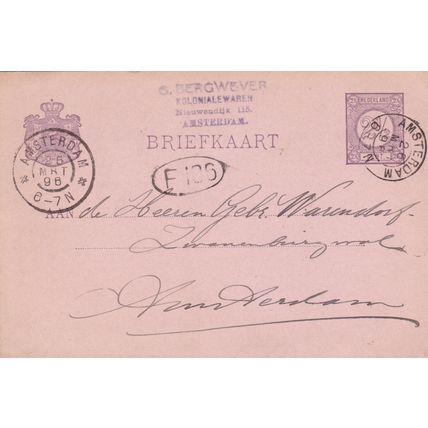 G. BERGWEVER
KOLONIALEWAREN
Nieuwendijk 115.
AMSTERDAM.
NEDERLAND
BRIEFKAART
AMSTERDAM
26
MRT
96
6-7N
AMSTERDAM
F 136
AAN de Heeren Gebr. Warendorf
Zwanenburgwal
Amsterdam